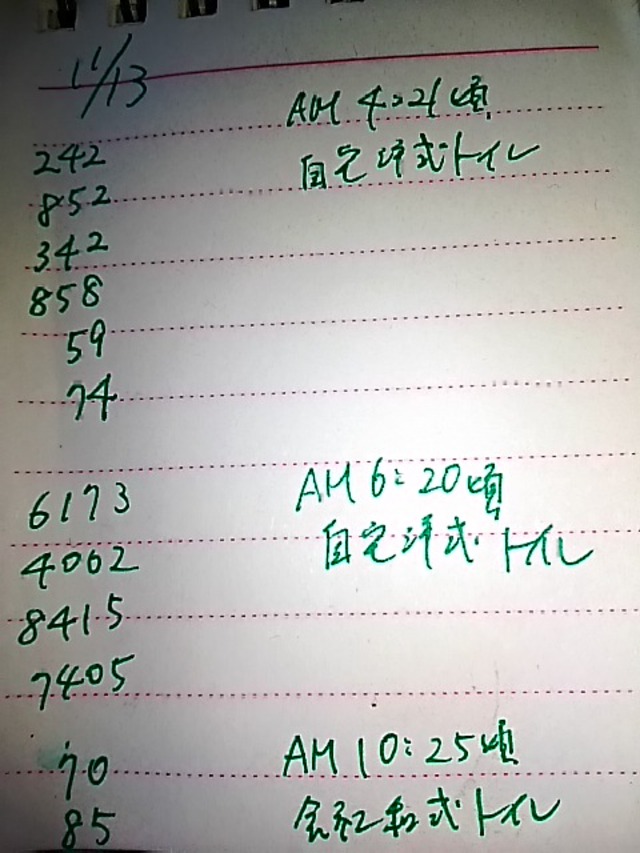 11/13
AM 4:21頃
242
自宅洋式トイレ
852
342
858
59
74
AM 6:20頃
6173
自宅洋式トイレ
4062
8415
7405
AM 10:25頃
70
会社和式トイレ
85